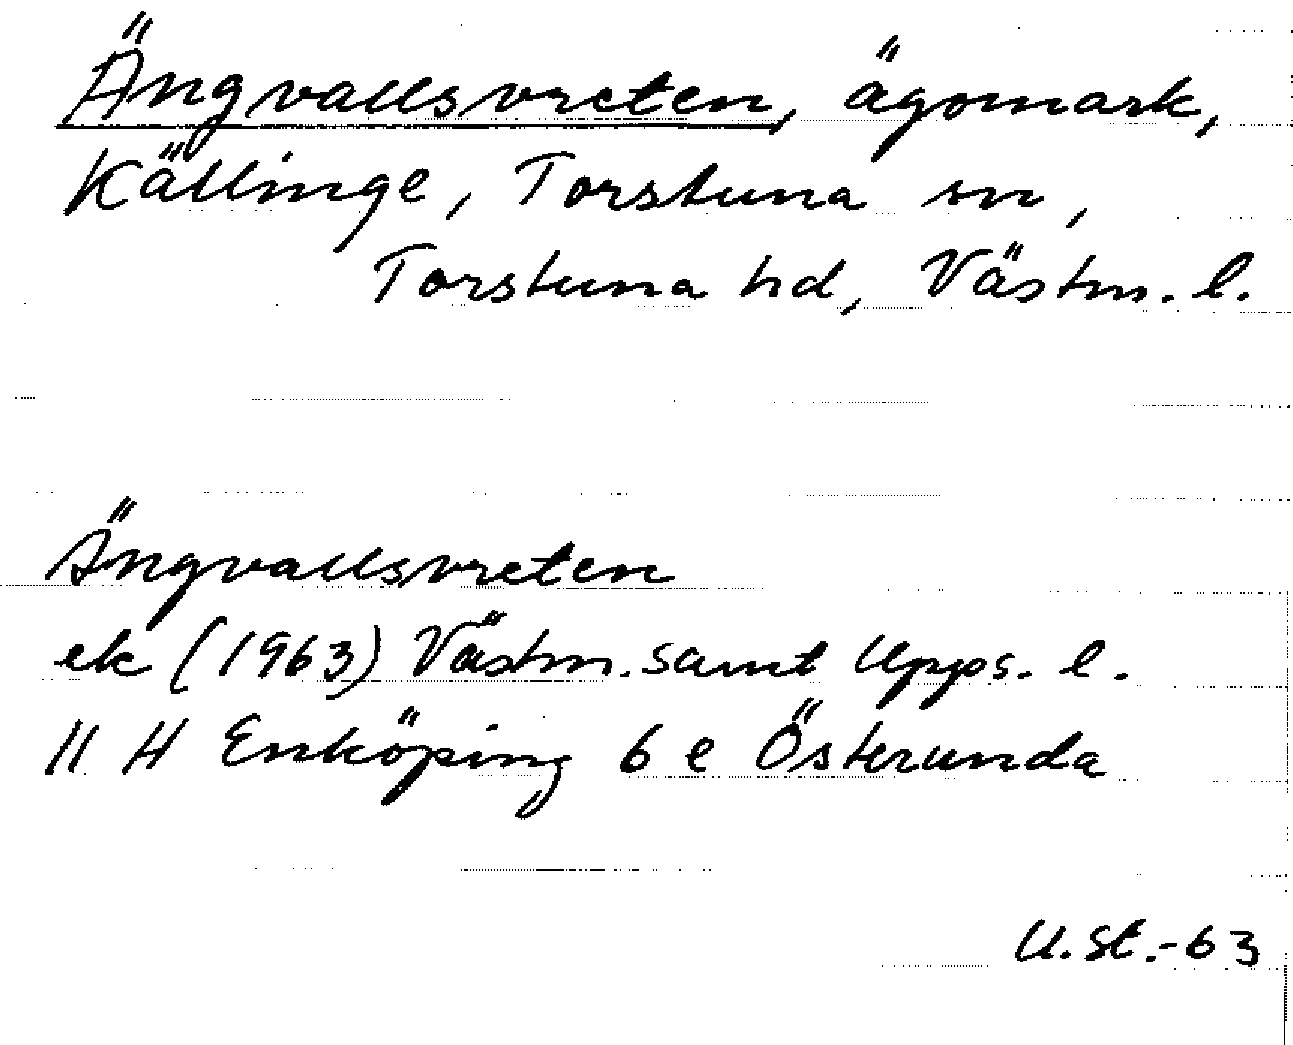 Ängvallsvreten, ägomark,
Källinge, Torstuna sn,
Torstuna hd, Västm. l.
Ängvallsvreten
ek (1963) Västm. samt Upps. l.
11 H Enköping 6 e Österunda
U. St. -63